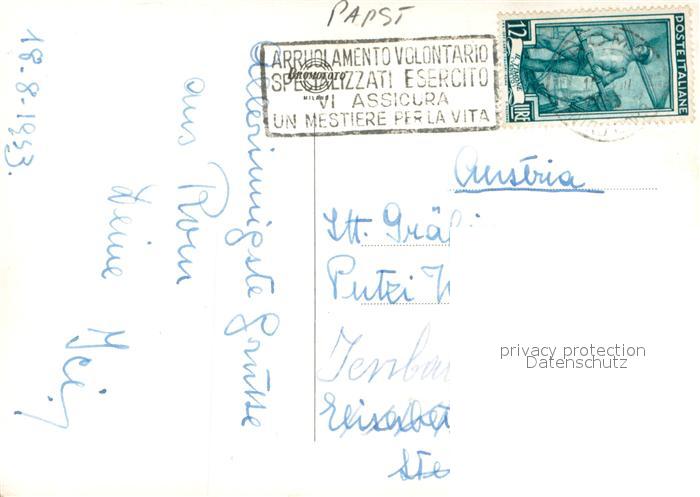 PAPST
ARRUOLAMENTO VOLONTARIO
SPECIALIZZATI ESERCITO
VI ASSICURA
UN MESTIERE PER LA VITA
BROMOFOTO
MILANO
12
LIRE
POSTE ITALIANE
18.-8.-1953.
Allerinnigste Grüsse
aus Rom
Deine
Austria
Gräfi
Putzi
Jenba
Elisabet
Ste
privacy protection
Datenschutz